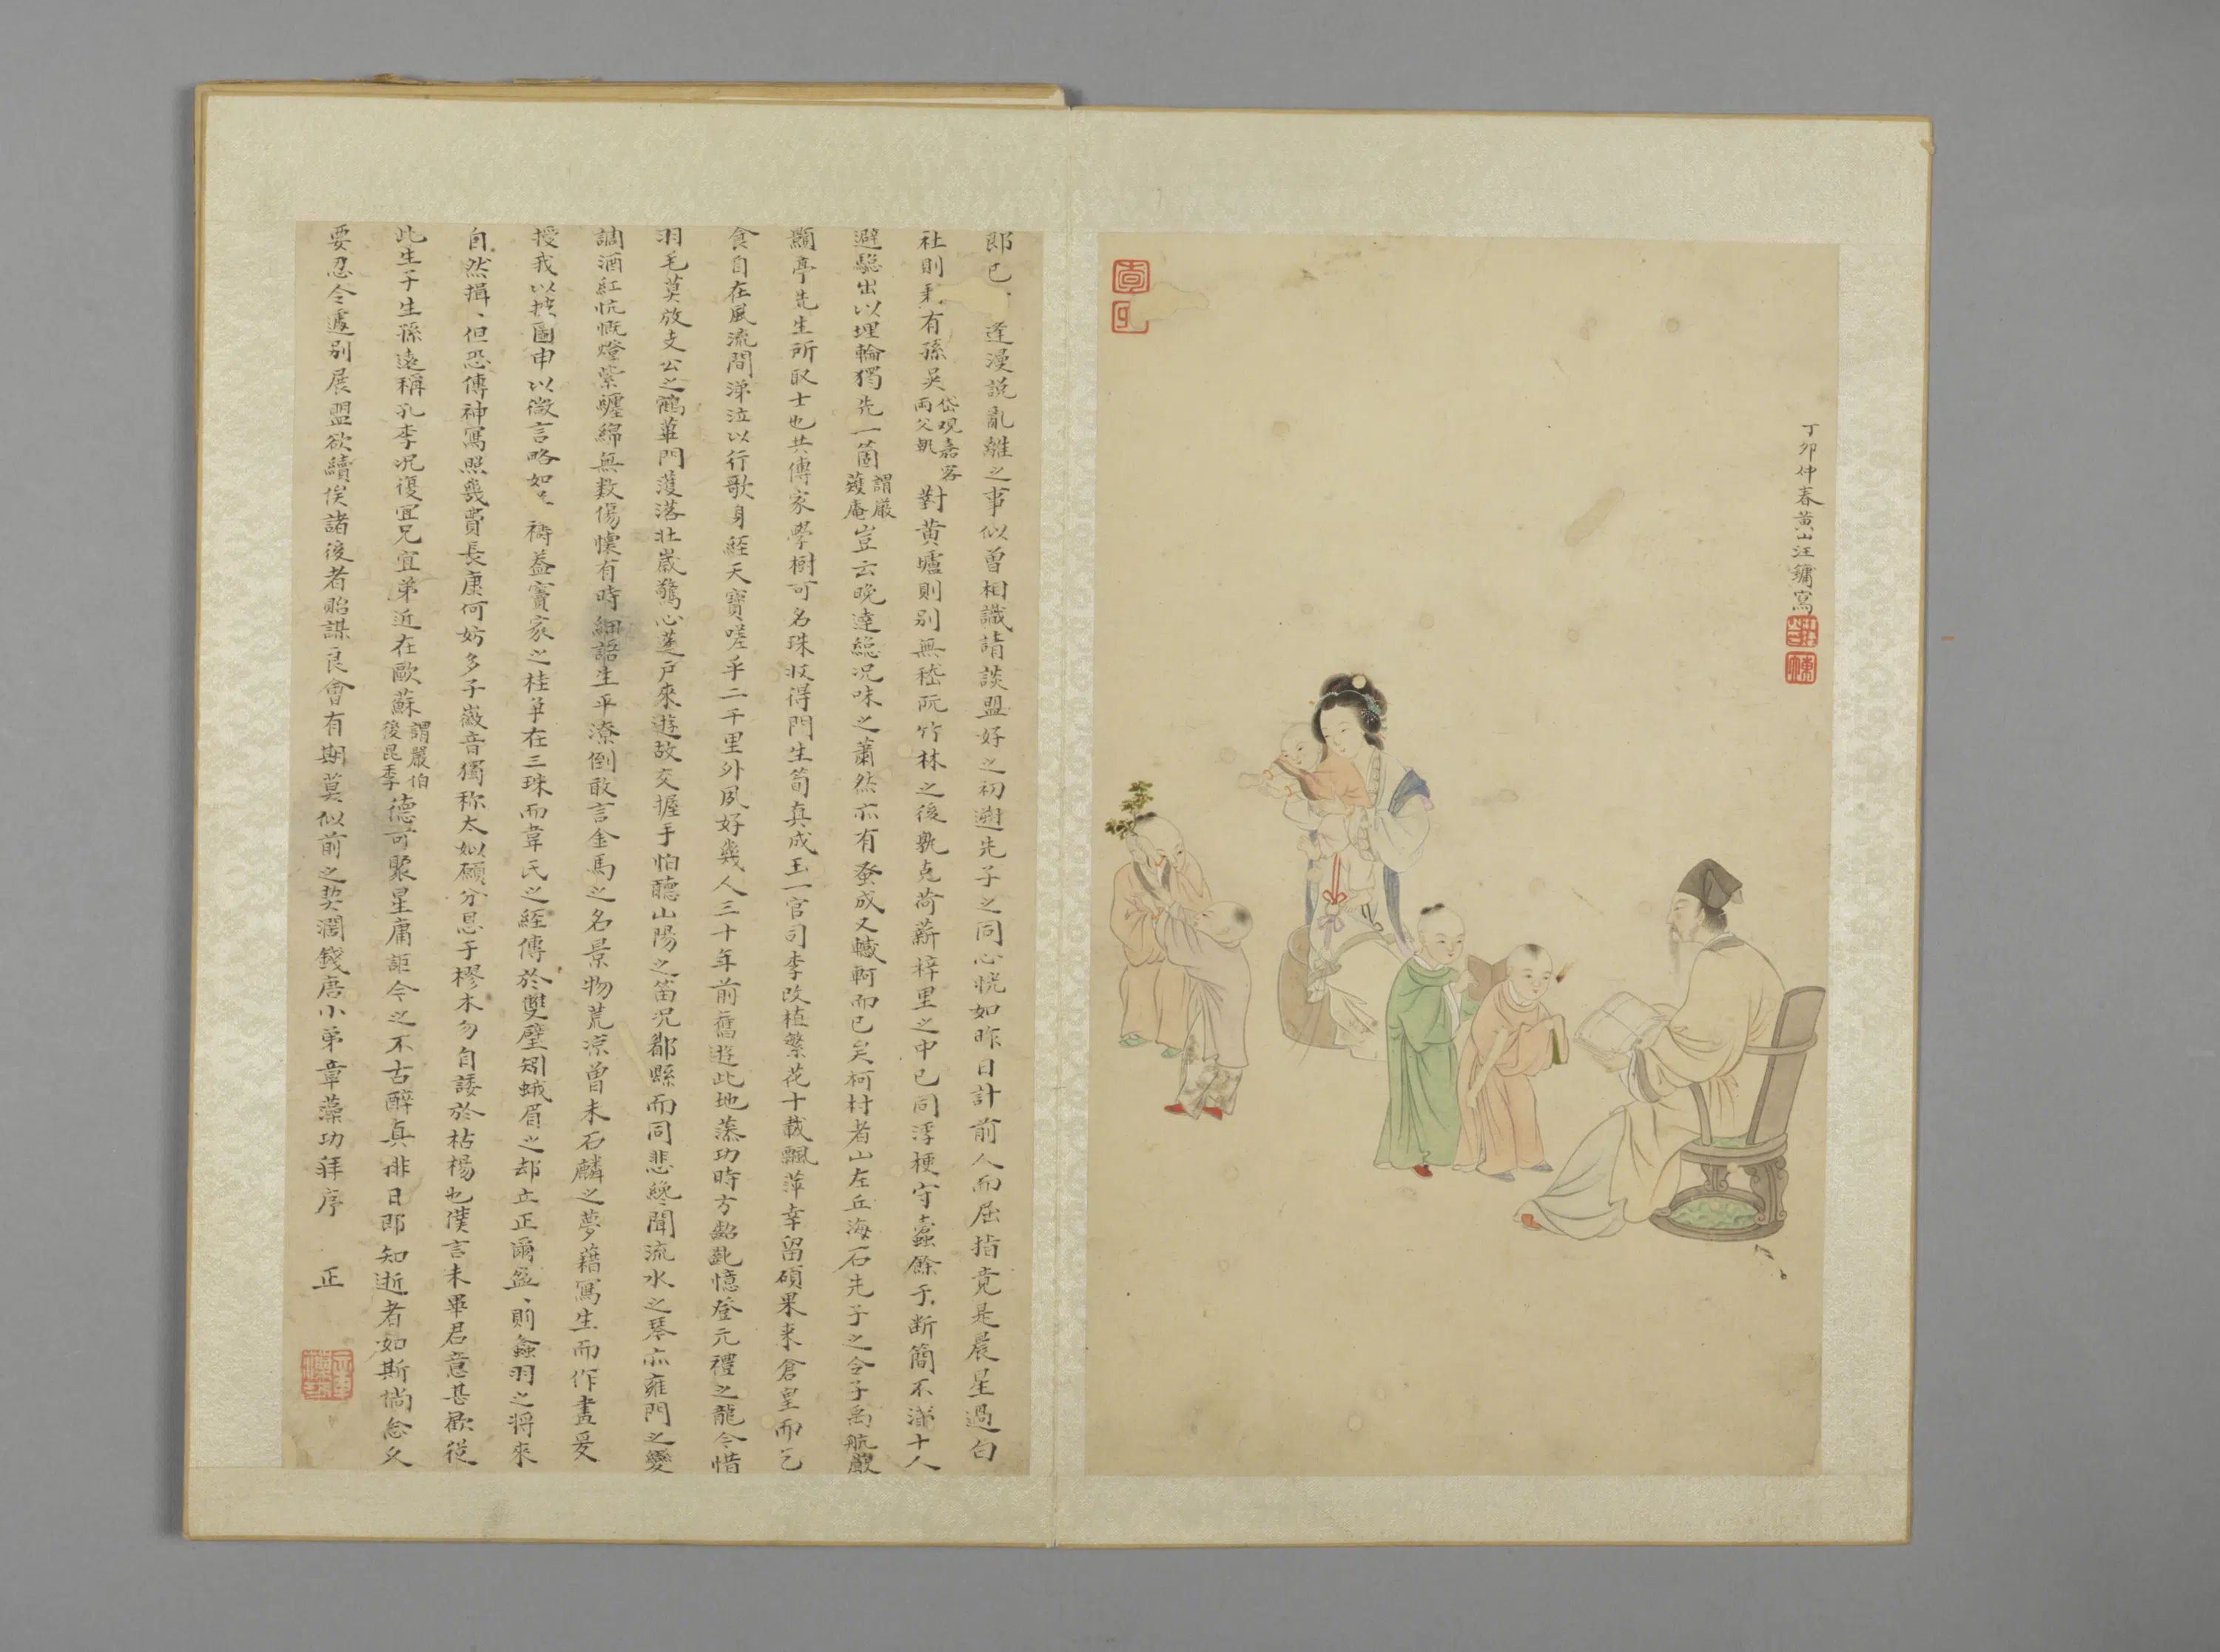 丁卯仲春黄山汪鏞寫
郎已逢漫說亂離之事似曾相識請談盟好之初遡先子之同心恍如昨日計前人而屈指竟是晨星過白
社則有孫吳岱觀嘉客兩父執對黃壚則別無嵇阮竹林之後孰克荷薪梓里之中已同浮梗守蠹餘于斷簡不滿十人
避驄出以埋輪獨先一箇謂嚴薐庵豈云晚達緫況味之蕭然亦有蚤成又轗軻而已矣柯村者山左丘海石先子之令子禹航嚴
顥亭先生所取士也共傳家學樹可名珠收得門生筍真成玉一官司李改植繁花十載飄萍幸留碩果来倉皇而乞
食自在風流間涕泣以行歌身經天寶嗟乎二千里外夙好幾人三十年前舊遊此地藻功時方齠齔憶登元禮之龍今惜
羽毛莫放支公之鶴蓽門濩落壯歲驚心蓬戶來遊故交握手怕聽山陽之笛況鄰縣而同悲纔聞流水之琴亦雍門之變
調酒紅忼慨燈縈纏綿無數傷懷有時細語生平潦倒敢言金馬之名景物荒涼曾未石麟之夢藉寫生而作畫爰
授我以披圖申以微言略如禱蓋竇家之桂争在三珠而韋氏之經傳於雙璧矧蛾眉之却立正爾盈、則螽羽之將來
自然揖、但恐傳神寫照幾費長康何妨多子嶶音獨称太姒願分恩于樛木勿自諉於枯楊也僕言未畢君意甚歡從
此生子生孫遠稱孔李況復宜兄宜弟近在歐蘇謂嚴伯後昆季德可聚星庸詎今之不古醉真排日即知逝者如斯倘念久
要忍令遽別展盟欲續俟諸後者貽謀良會有期莫似前之契濶錢唐小弟章藻功拜序 正